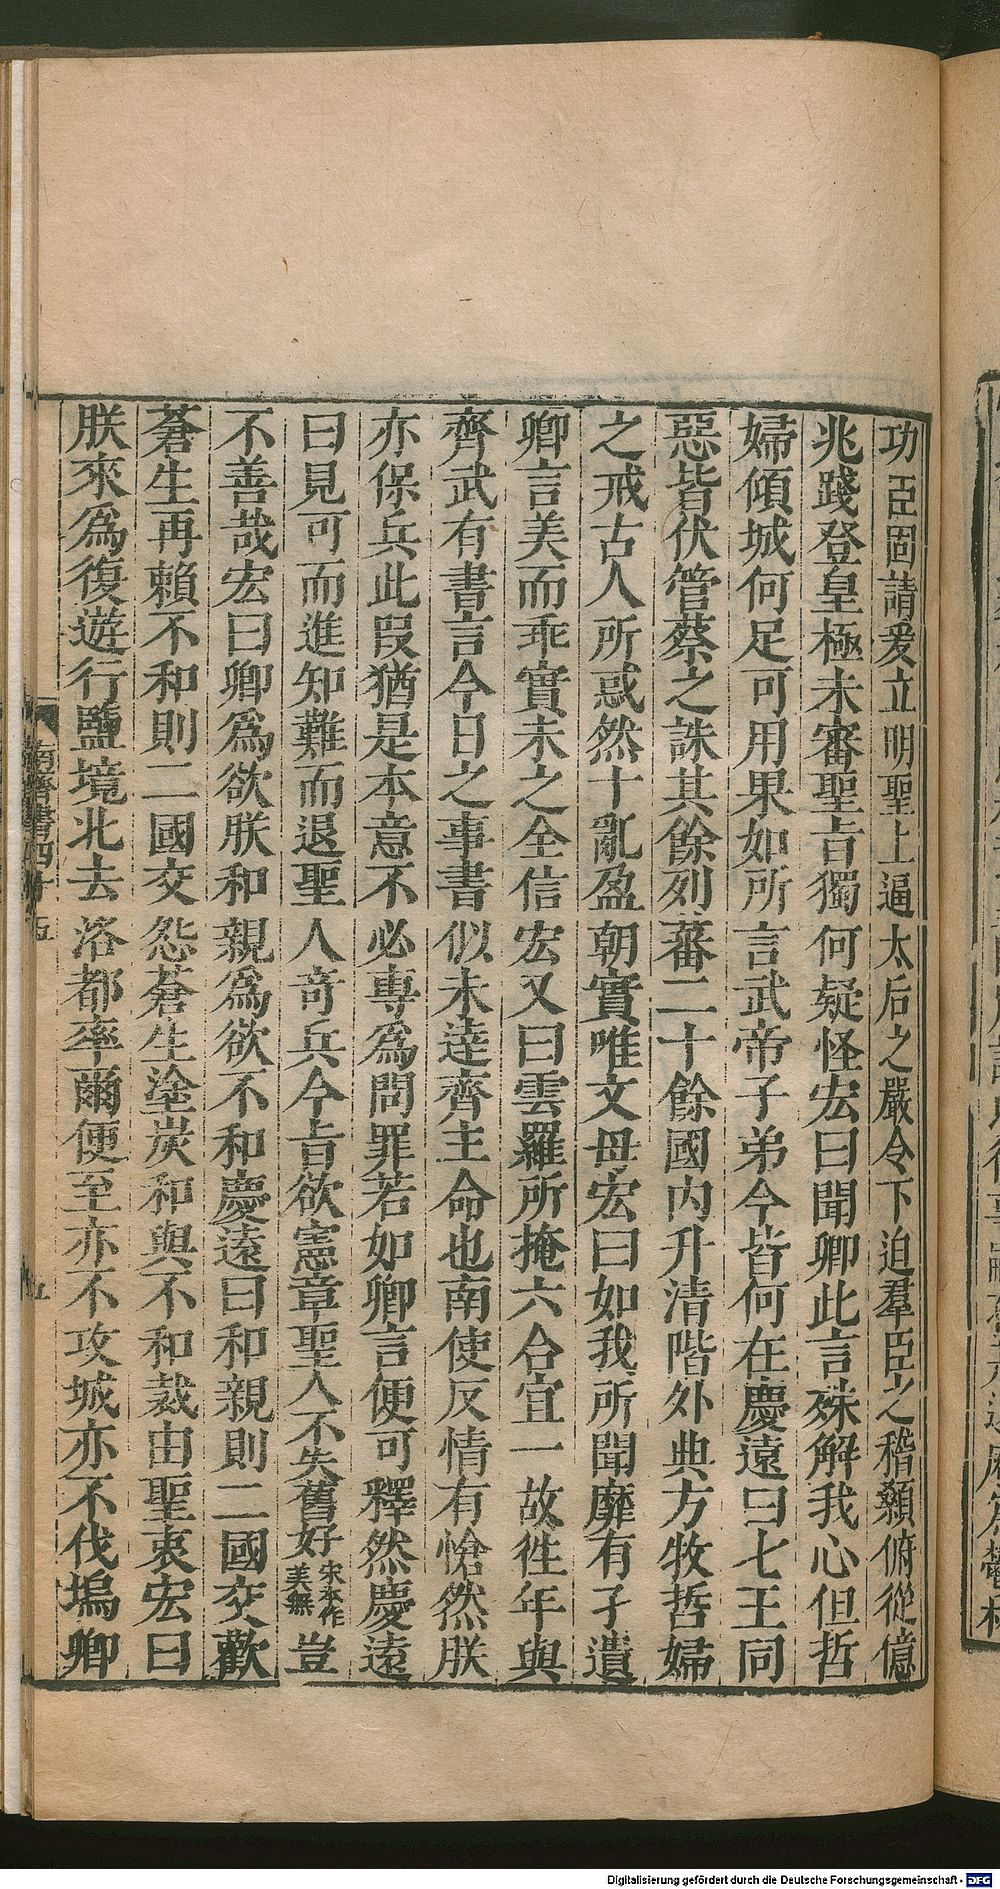 功臣固請爰立明聖上逼太后之嚴令下迫羣臣之稽顙俯從億
兆踐登皇極未審聖旨獨何疑怪宏曰聞卿此言殊解我心但哲
婦傾城何足可用果如所言武帝子弟今皆何在慶遠曰七王同
惡皆伏管蔡之誅其餘列蕃二十餘國內升清階外典方牧哲婦
之戒古人所惑然十亂盈朝實唯文母宏曰如我所聞靡有孑遺
卿言美而乖實未之全信宏又曰雲羅所掩六合宜一故徃年與
齊武有書言今日之事書似未達齊主命也南使反情有愴然朕
亦保兵此叚猶是本意不必專爲問罪若如卿言便可釋然慶遠
曰見可而進知難而退聖人竒兵今旨欲憲章聖人不失舊好宋本作美無豈
不善哉宏曰卿爲欲朕和親爲欲不和慶遠曰和親則二國交歡
蒼生再賴不和則二國交怨蒼生塗炭和與不和裁由聖衷宏曰
朕來爲復遊行鹽境北去洛都率爾便至亦不攻城亦不伐塢卿
南齊書四十五
五
Digitalisierung gefördert durch die Deutsche Forschungsgemeinschaft - DFG